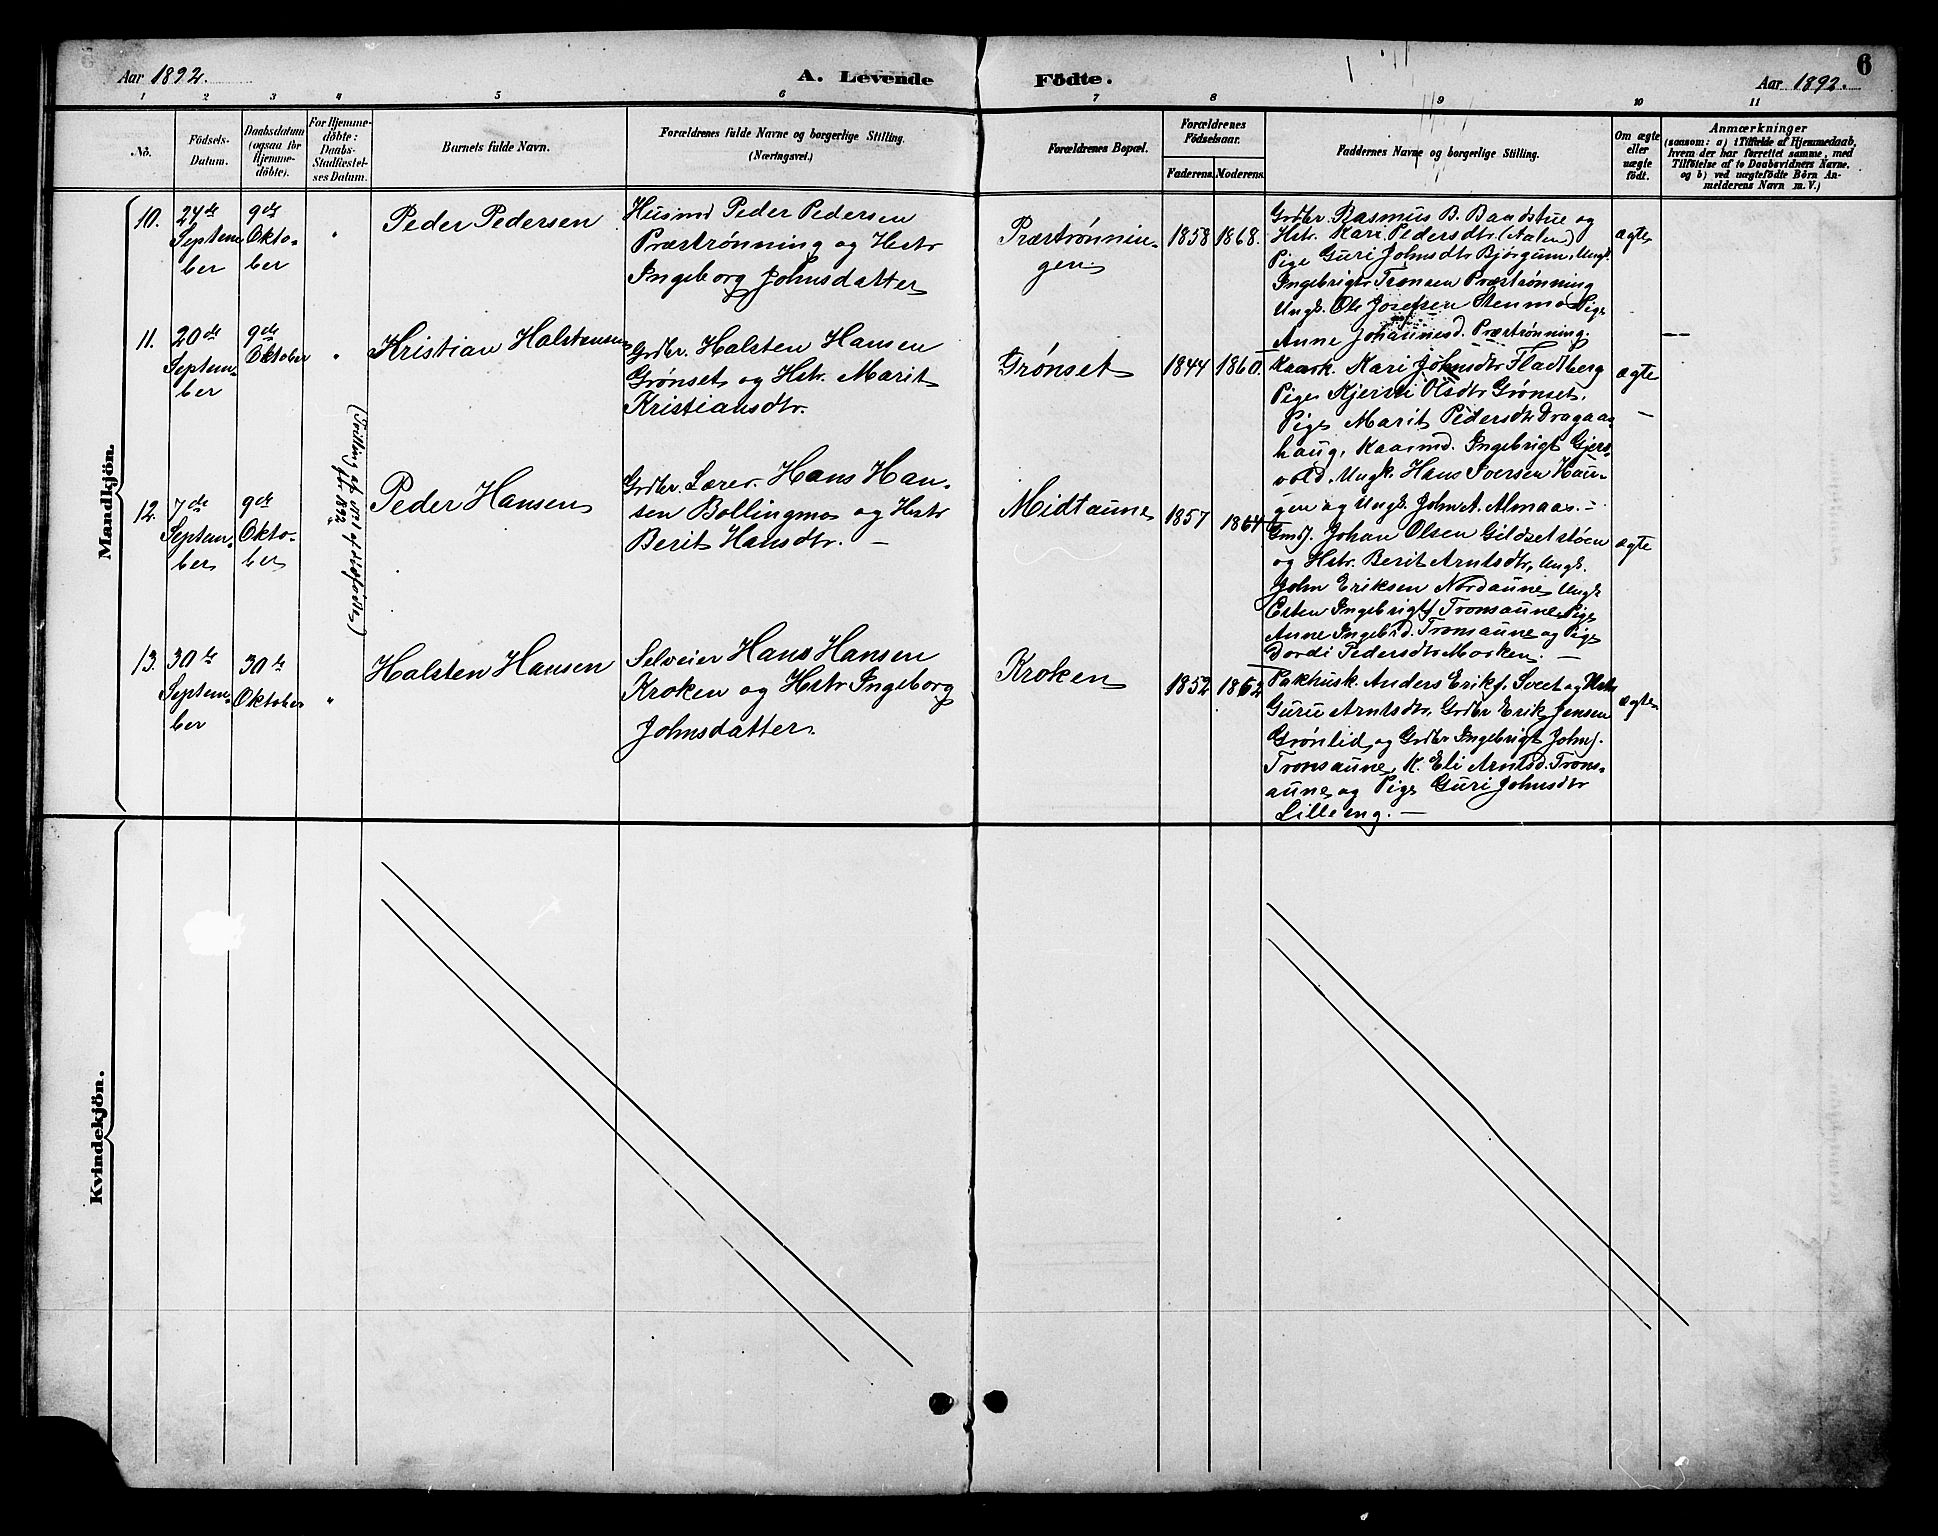 Aar 1892. A. Levende Födte. Aar 1892. 6
1 2 3 4 5 6 7 8 9 10 11
No. Födsels-Datum. Daabsdatum (ogsaa för Hjemme-döbte). For Hjemme-döbte: Daabs-Stadfæstel-ses Datum. Barnets fulde Navn. Forældrenes fulde Navne og borgerlige Stilling. (Næringsvei.) Forældrenes Bopæl. Forældrenes Födselsaar. Faderens. Moderens. Faddernes Navne og borgerlige Stilling. Om ægte eller uægte födt. Anmærkninger
(saasom: a) i Tilfælde af Hjemmedaab,
hvem der har forrettet samme, med
Tilföielse af to Daabsvidners Navne.
og b) ved uægtefödte Börn An-
melderens Navn m. V.)
Mandkjön.
10.
24de
Septem
ber
9de
Okto-
ber
"
Peder Pedersen
Husmd Peder Pedersen
Præstrønning og Hstr
Ingeborg Johnsdatter
Præstrønnin-
gen
1858 1868.
Grdbr. Rasmus B. Baadstue og
Hstr. Kari Pedersdtr. (Aalen)
Pige Guri Johnsdtr Bjørgum, Ungk.
Ingebrigt Tronsen Præstrønning
Ungk. Ole Josefsen Stenmo Pige
Anne Johannesd. Præstrønning.
ægte
11.
20de
Septem-
ber
9de
Oktober
"
Kristian Halstensen
Grdbr. Halsten Hansen
Grønset og Hstr. Marit
Kristiansdtr.
Grønset
1844 1860.
Kaark. Kari Johnsdtr Fladberg
Pige Kjersti Olsdtr Grønset,
Pige Marit Pedersdtr Dragaas-
haug, Kaarmd. Ingebrigt Gjers-
vold, Ungk. Hans Iversen Hau-
gen og Ungk. John A. Almaas. -
ægte
-
12.
7de
Septem-
ber
9de
Okto-
ber
(Tvilling af
1892.
Peder Hansen
Grdbr. Lærer Hans Han-
sen Bollingmo og Hstr
Berit Hansdtr. -
Midtaune
1857 1864
Gmdj. Johan Olsen Gildsetstøen
og Hstr. Berit Arntsdtr, Ungk.
John Eriksen Nordaune, Ungk
Esten Ingebrigts. Tronsaune, Pige
Anne Ingebrd. Tronsaune og Pige
Dordi Pedersdtr Morken. -
ægte
13.
30te
Septem-
ber
30te
Oktober
"
Halsten Hansen
Selveier Hans Hansen
Kroken og Hstr Ingeborg
Johnsdatter.
Kroken
1852 1862
Pakhusk. Anders Eriks. Sveet og Hstr
Guru Arntsdtr, Grdbr Erik Jensen
Grønlid, og Grdbr Ingebrigt Johns.
Tronsaune, K. Eli Arntsd. Trons-
aune og Pige Guri Johnsdtr
Lilleeng. -
ægte
Kvindekjön.